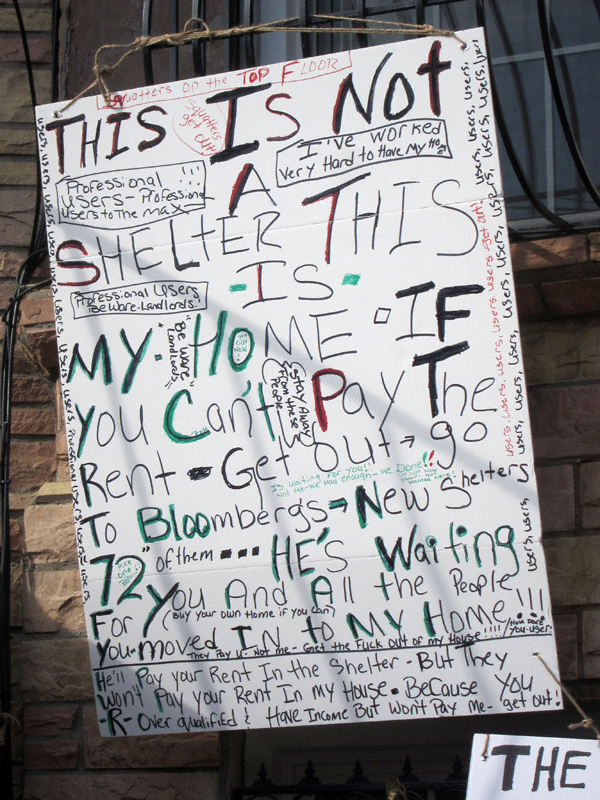 Squatters on the TOP FLOOR
THIS IS NOT
Squatters get out!
I've worked
very Hard to Have My Home
Professional !!!
users - Professional
users to the max
A
SHELTER THIS
- IS -
Professional users
BeWare - Landlords!
MY HOME IF
get out NOW
"Be Ware" Landlords
You Can't Pay The
Stay Away From these People
Rent - Get Out → go
Is waiting for You!! 
Not Me - We Had enough - We Done!!
To Bloombergs → New Shelters
72" of them --- HE'S Waiting
Pick one
For You And All the People
(Buy your own Home if you can)
You moved IN to MY Home!!!
They Pay U - Not me - Get the Fuck out of my House!!!!
How Dare you-user!
He'll Pay your Rent In the Shelter - But They
Won't Pay your Rent In my House - Because You
-R- Over qualified & Have Income But Won't Pay me - get out!
users, users, users, users, users, users, users, Professional users, users, users
users, users, users, users, users, users get out!
users, users, users, users, users, users, users, users, users
THE